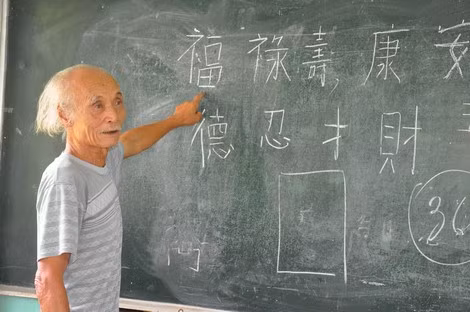 福 祿 壽 康 安
德 忍 才 財